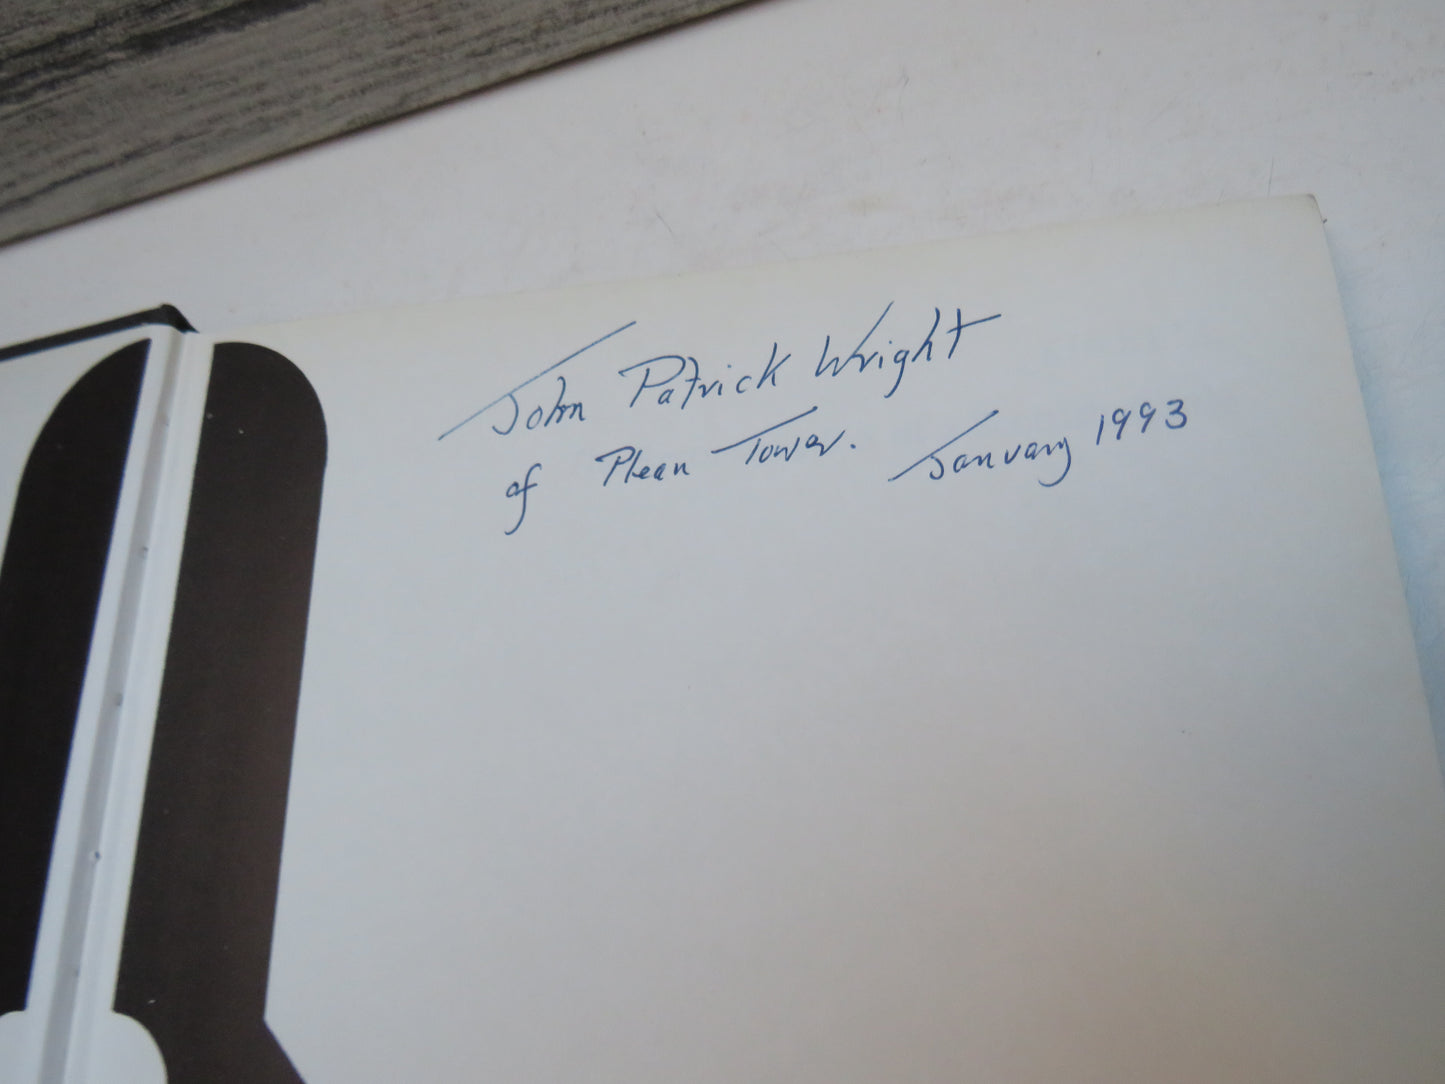 John Patrick Wright
of Plean Tower. January 1993